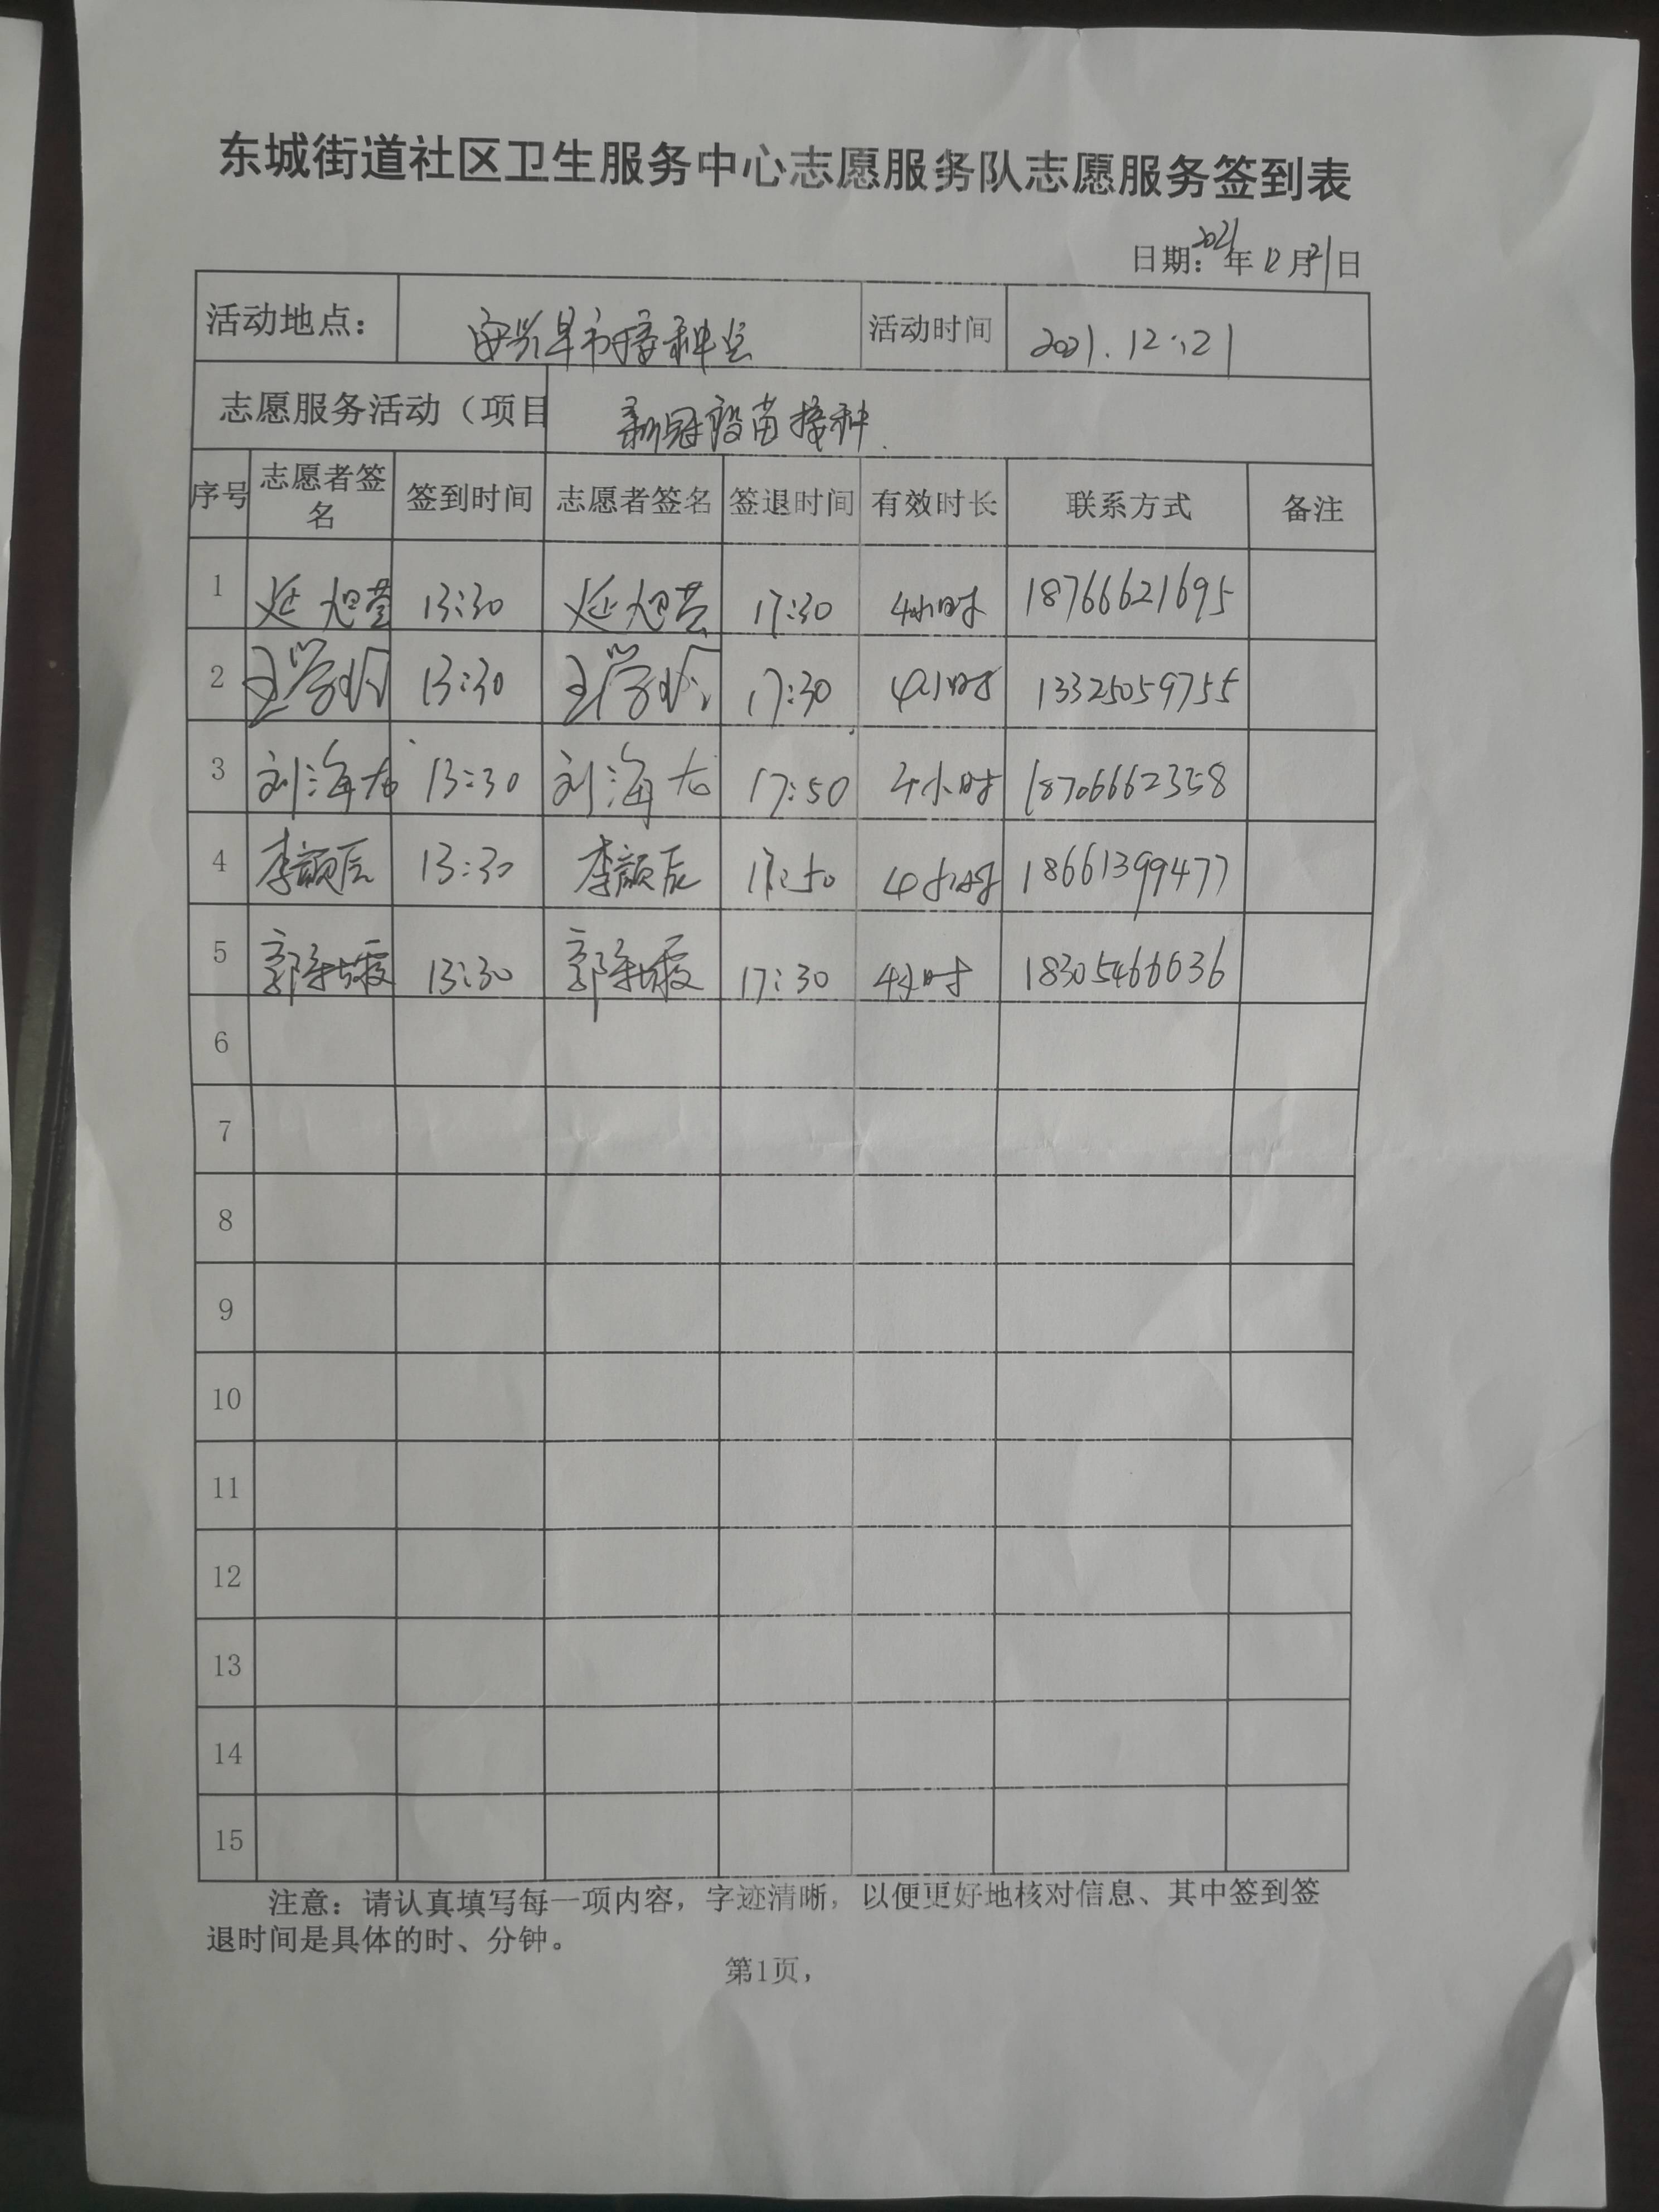 东城街道社区卫生服务中心志愿服务队志愿服务签到表
日期：2021年12月21日
活动地点： 安兴早市接种点 活动时间 2021.12.21
志愿服务活动（项目 新冠疫苗接种
序号 志愿者签名 签到时间 志愿者签名 签退时间 有效时长 联系方式 备注
1 延旭莹 13:30 延旭芸 17:30 4小时 18766621695
2 王学 13:30 王学 17:30 4小时 13325059755
3 刘海龙 13:30 刘海龙 17:50 4小时 18706662358
4 李颜辰 13:30 李颜辰 17:50 4小时 18661399477
5 郭 霞 13:30 郭 霞 17:30 4小时 18305466636
6
7
8
9
10
11
12
13
14
15
注意：请认真填写每一项内容，字迹清晰，以便更好地核对信息、其中签到签
退时间是具体的时、分钟。
第1页，